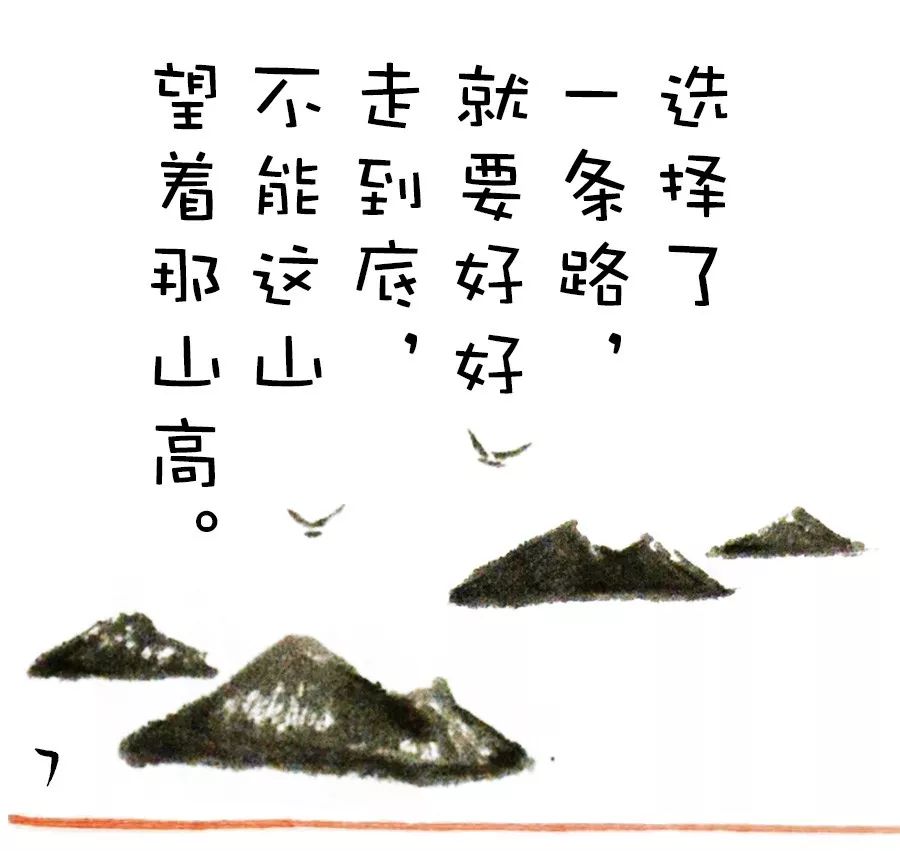 选择了
一条路，
就要好好
走到底，
不能这山
望着那山高。
7